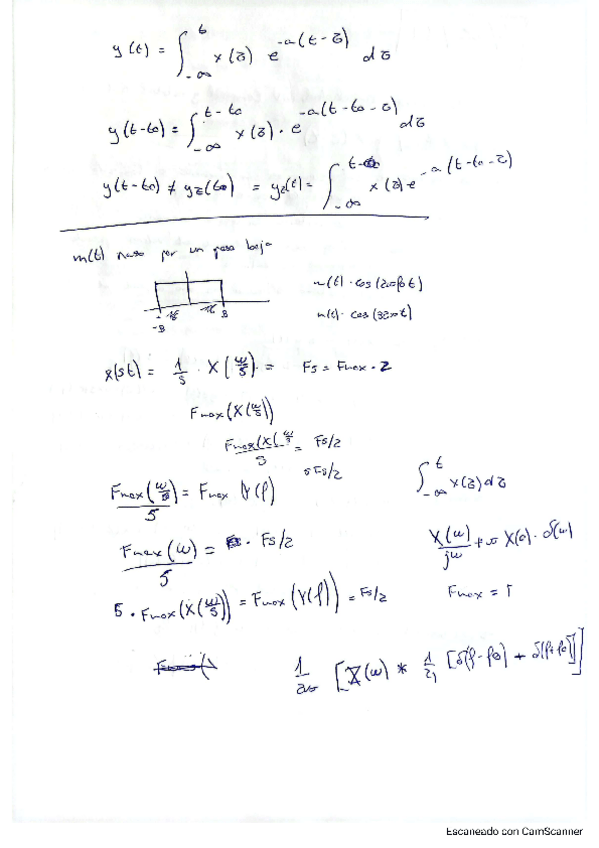 y(t) = ∫_{-∞}^{t} x(τ) e^{-a(t-τ)} dτ
y(t-t0) = ∫_{-∞}^{t-t0} x(τ) · e^{-a(t-t0-τ)} dτ
y(t-t0) ≠ y2(t0) = y2(t) = ∫_{-∞} x(τ) e^{-a(t-t0-τ)}
m(t) pasa por un paso bajo
-B B
n(t) · cos(2πf0t)
n(t) · cos(32πt)
x(5t) = 1/5 · X(w/5) = Fs = Fmax · 2
Fmax(X(w/5))
Fmax(X(w/5 / 5 = Fs/2
5Fs/2
Fmax(w/5)/5 = Fmax Y(f)
∫_{-∞}^{t} x(τ) dτ
Fmax(w)/5 = · Fs/2
X(w)/jw + π X(0) · δ(w)
5 · Fmax(X(w/5)) = Fmax(Y(f)) = Fs/2
Fmax =
1/2π [X(w) * 1/2j [δ(f-f0) + δ(f+f0)]]
Escaneado con CamScanner